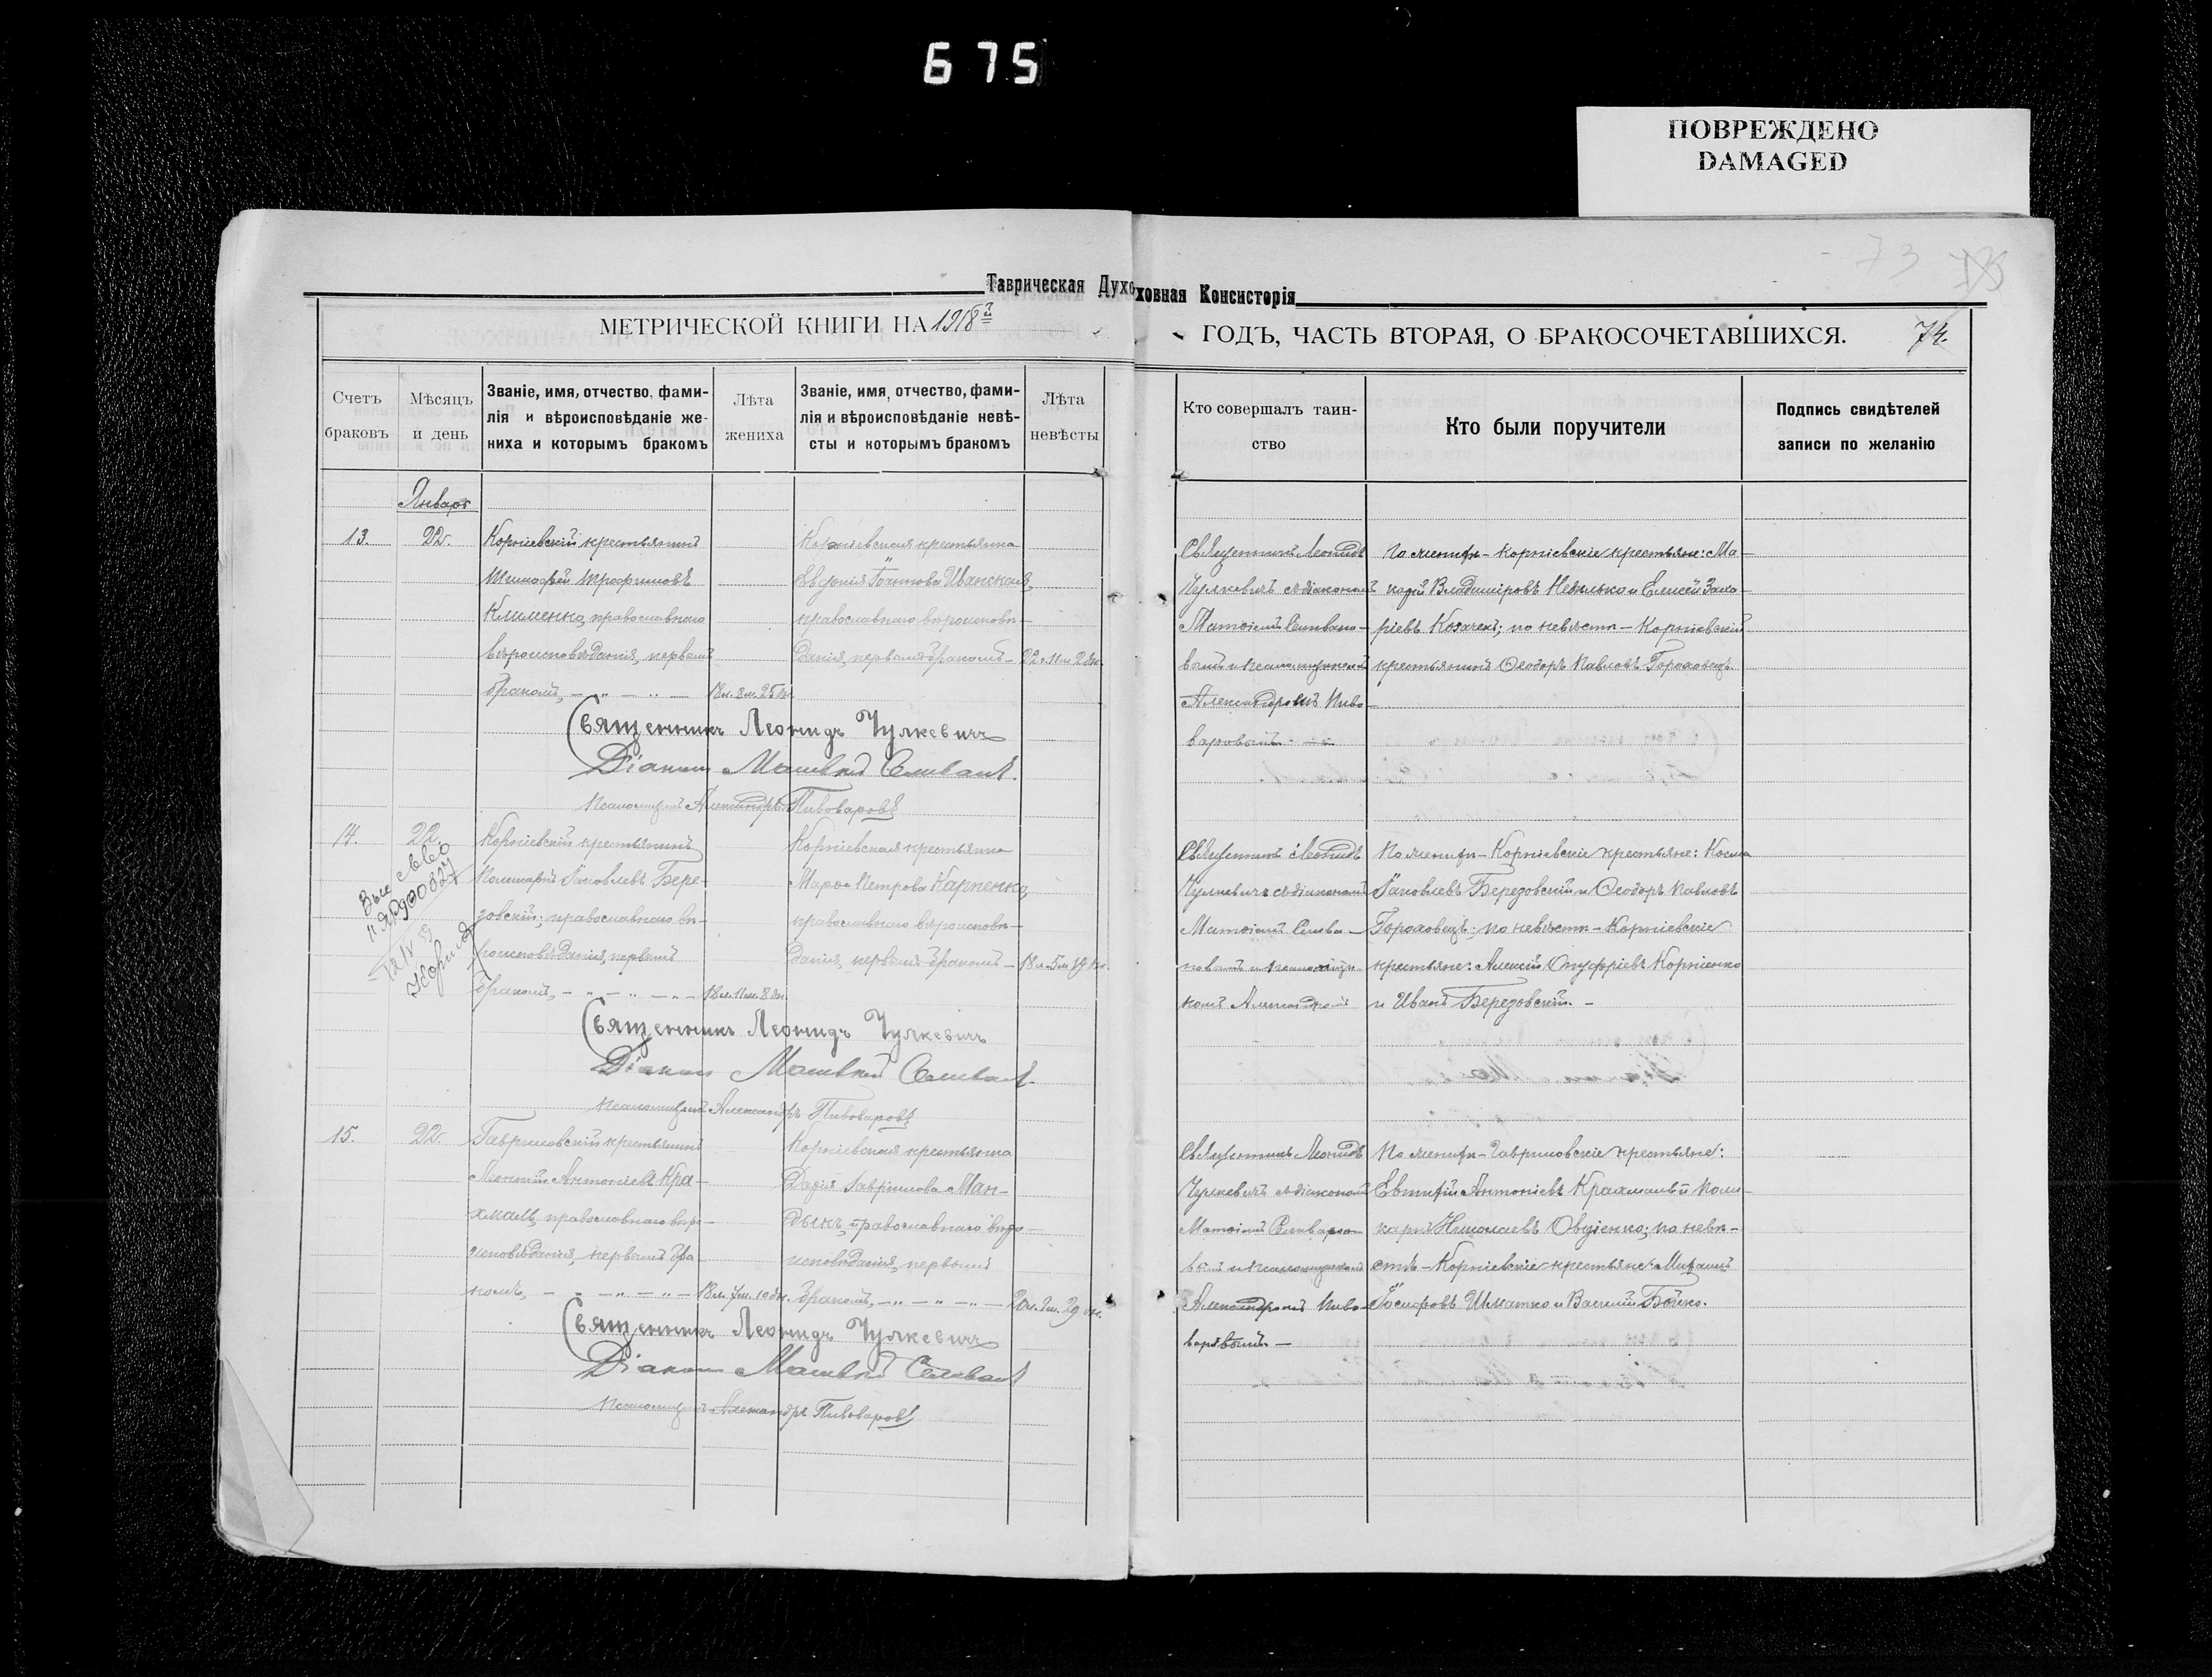 675
ПОВРЕЖДЕНО
DAMAGED
73
Таврическая Духовная Консисторія
МЕТРИЧЕСКОЙ КНИГИ НА 1918й
ГОДЪ, ЧАСТЬ ВТОРАЯ, О БРАКОСОЧЕТАВШИХСЯ.
74.
Счетъ браковъ
Мѣсяцъ и день
Званіе, имя, отчество, фами-
лія и вѣроисповѣданіе же-
ниха и которымъ бракомъ
Лѣта жениха
Званіе, имя, отчество, фами-
лія и вѣроисповѣданіе невѣ-
сты и которымъ бракомъ
Лѣта невѣсты
Кто совершалъ таин-
ство
Кто были поручители
Подпись свидѣтелей
записи по желанію
Январь
13.
22.
Корніевскій крестьянинъ
Тимофей Трофимовъ
Клименко, православнаго
вѣроисповѣданія, первымъ
бракомъ,
18 л. 8 м. 25 дн.
Корніевская крестьянка
православнаго вѣроисповѣ-
данія, первымъ бракомъ
22 л. 11 м. 2 дн.
Священникъ Леонидъ
Чулкевичъ съ діакономъ
Матѳіемъ Селивано-
вымъ и псаломщикомъ
Александромъ Пиво-
варовымъ
По женихѣ - Корніевскіе крестьяне: Ма-
Владиміровъ и Елисей Заха-
ріевъ Козачекъ; по невѣстѣ - Корніевскій
крестьянинъ Ѳеодоръ Павловъ Гороховецъ
Священникъ Леонидъ Чулкевичъ
Діаконъ Матвѣй Селивановъ
Псаломщикъ Александръ Пивоваровъ
14.
22.
Корніевскій крестьянинъ
Поликарпъ Іаковлевъ Бере-
зовскій; православнаго вѣ-
роисповѣданія, первымъ
бракомъ,
18 л. 11 м. 8 дн.
Корніевская крестьянка
Марѳа Петрова Карпенко,
православнаго вѣроисповѣ-
данія, первымъ бракомъ
18 л. 5 м.
Священникъ Леонидъ
Чулкевичъ съ діакономъ
Матѳіемъ Селива-
новымъ и псаломщи-
комъ Александромъ
По женихѣ - Корніевскіе крестьяне: Косма
Іаковлевъ Березовскій и Ѳеодоръ Павловъ
Гороховецъ; по невѣстѣ - Корніевскіе
крестьяне: Алексій Онуфріевъ Корніенко
и Иванъ Березовскій.
Священникъ Леонидъ Чулкевичъ
Діаконъ Матвѣй Селивановъ
Псаломщикъ Александръ Пивоваровъ
15.
22.
Гавриловскій крестьянинъ
Леонтій Антоніевъ Кра-
хмаль, православнаго вѣро-
исповѣданія, первымъ бра-
комъ,
18 л. 7 м. 10 дн.
Корніевская крестьянка
Дарія Гавріилова Ман-
дыкъ, православнаго вѣро-
исповѣданія, первымъ
бракомъ,
20 л. 29 дн.
Священникъ Леонидъ
Чулкевичъ съ діакономъ
Матѳіемъ Селивано-
вымъ и псаломщикомъ
Александромъ Пиво-
варовымъ
По женихѣ - Гавриловскіе крестьяне:
Евтихій Антоніевъ Крахмаль и Поли-
карпъ Николаевъ Овсіенко; по невѣ-
стѣ - Корніевскіе крестьяне: Михаилъ
Іосифовъ Шматко и Василій Бойко.
Священникъ Леонидъ Чулкевичъ
Діаконъ Матвѣй Селивановъ
Псаломщикъ Александръ Пивоваровъ